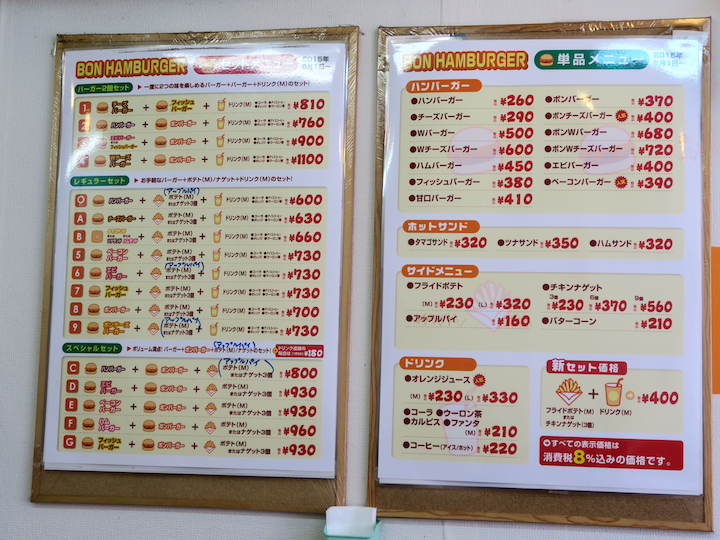 BON HAMBURGER
バーガー2個セット ▶ 一度に2つの味を楽しめるバーガー+バーガー+ドリンク(M)のセット!
1 チーズバーガー + フィッシュバーガー + ドリンク(M) ¥810
ハンバーガー + ボンバーガー + ドリンク(M) ¥760
エビバーガー フィッシュバーガー + ボンバーガー + ドリンク(M) ¥900
+ ボンバーガー + ドリンク(M) ¥1100
レギュラーセット ▶ お手軽なバーガー+ポテト(M)/ナゲット+ドリンク(M)のセット!
(アップルパイ)
O ハンバーガー + ポテト(M)またはナゲット3個 + ドリンク(M) ¥600
A チーズバーガー + ポテト(M)またはナゲット3個 + ドリンク(M) ¥630
B + ポテト(M)またはナゲット3個 + ドリンク(M) ¥660
5 ベーコンバーガー + ポテト(M)またはナゲット3個 + ドリンク(M) ¥730
(アップルパイ)
6 エビバーガー + ポテト(M)またはナゲット3個 + ドリンク(M) ¥730
7 フィッシュバーガー + ポテト(M)またはナゲット3個 + ドリンク(M) ¥730
8 ボンバーガー + ポテト(M)またはナゲット3個 + ドリンク(M) ¥700
(アップルパイ)
9 ボンチーズバーガー + ポテト(M)またはナゲット3個 + ドリンク(M) ¥730
(アップルパイ)
スペシャルセット ▶ ボリューム満点!バーガー+ボンバーガー+ポテト(M)/ナゲットのセット! ¥180
(アップルパイ)
C ハンバーガー + ボンバーガー + ポテト(M)またはナゲット3個 ¥800
D エビバーガー + ボンバーガー + ポテト(M)またはナゲット3個 ¥930
E ベーコンバーガー + ボンバーガー + ポテト(M)またはナゲット3個 ¥930
F ハムバーガー + ボンバーガー + ポテト(M)またはナゲット3個 ¥960
G フィッシュバーガー + ボンバーガー + ポテト(M)またはナゲット3個 ¥930
BON HAMBURGER 単品メニュー
ハンバーガー
●ハンバーガー ¥260 ●ボンバーガー ¥370
●チーズバーガー ¥290 ●ボンチーズバーガー 人気 ¥400
●Wバーガー ¥500 ●ボンWバーガー ¥680
●Wチーズバーガー ¥600 ●ボンWチーズバーガー ¥720
●ハムバーガー ¥450 ●エビバーガー ¥400
●フィッシュバーガー ¥380 ●ベーコンバーガー 人気 ¥390
●甘口バーガー ¥410
ホットサンド
●タマゴサンド ¥320 ●ツナサンド ¥350 ●ハムサンド ¥320
サイドメニュー
●フライドポテト ●チキンナゲット
(M) ¥230 (L) ¥320 3個 ¥230 6個 ¥370 9個 ¥560
●アップルパイ ¥160 ●バターコーン ¥210
ドリンク
●オレンジジュース 人気
(M) ¥230 (L) ¥330
●コーラ ●ウーロン茶
●カルピス ●ファンタ
(M) ¥210
●コーヒー(アイス/ホット) ¥220
新セット価格
+ ¥400
フライドポテト(M) ドリンク(M)
または
チキンナゲット(3個)
すべての表示価格は
消費税8%込みの価格です。